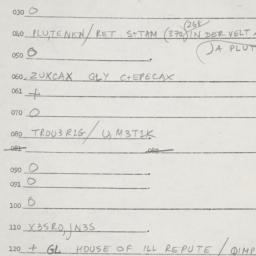 030 O
(268
040 PLUTENKN / RET S+TAM (270) IN DER VELT
) A PLUT
050 O
060 ZUXCAX QLY C+EPECAX
061 +
070 O
080 TROU3R1G / U, M3T1K
081
090 O
091 O
100 O
110 X3SRO, JN3S
120 + GL HOUSE OF ILL REPUTE / QIMP